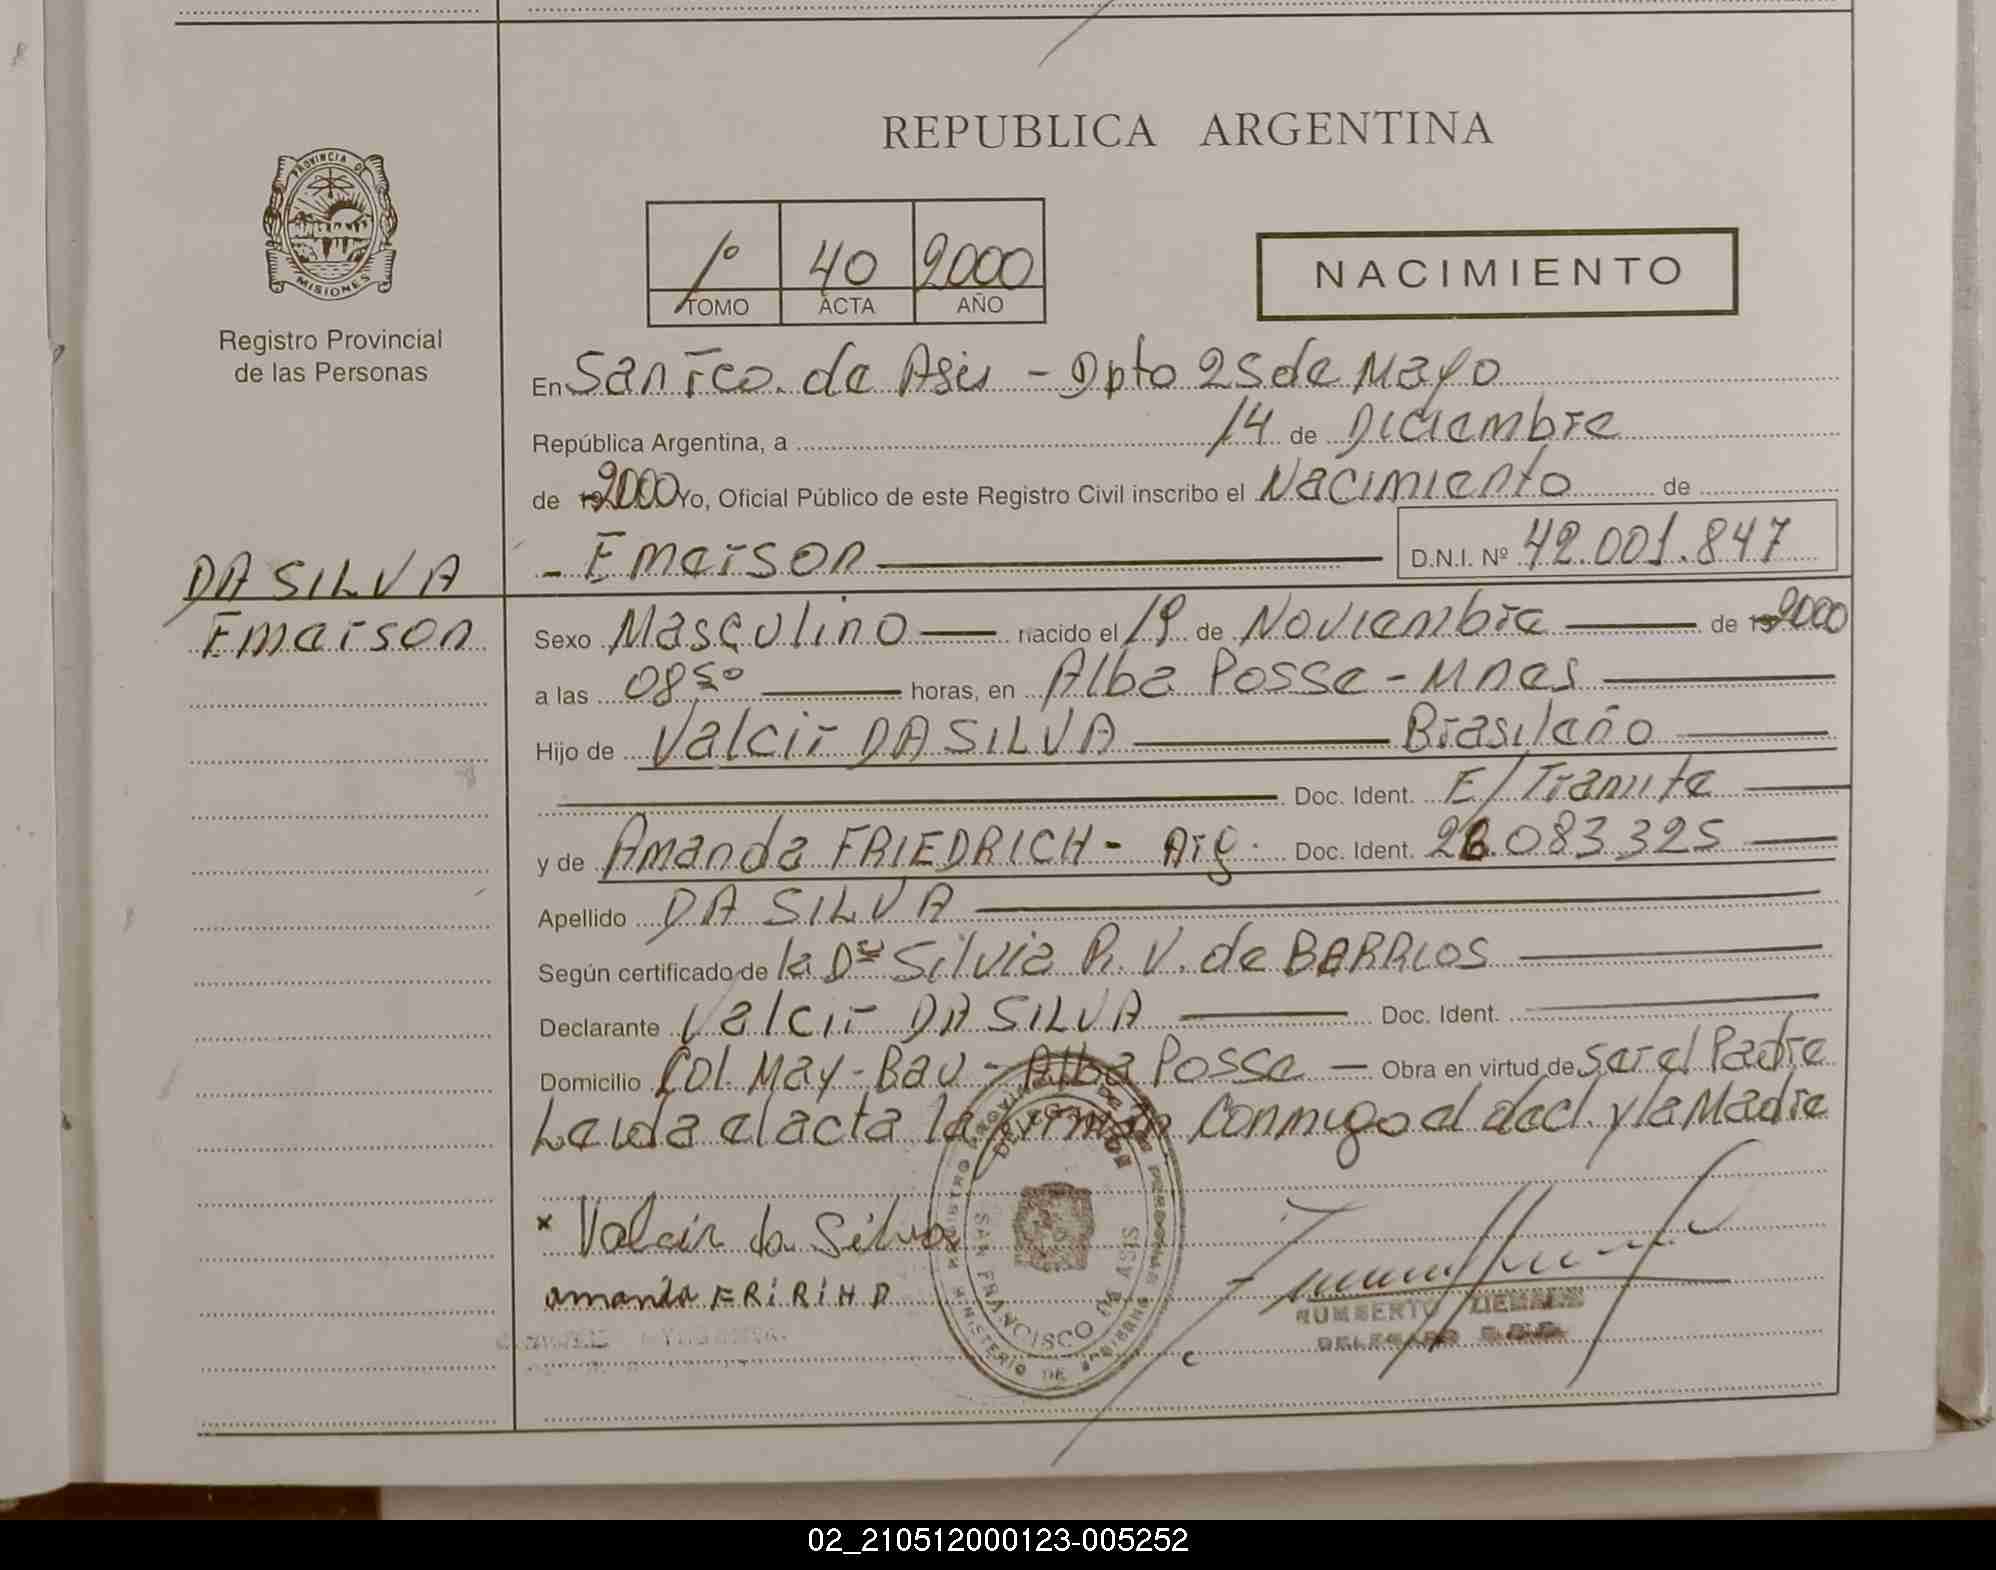 REPUBLICA ARGENTINA
PROVINCIA DE
MISIONES
Registro Provincial
de las Personas
1º 40 2000
TOMO ACTA AÑO
NACIMIENTO
En San Fco. de Asis - Dpto 25 de Mayo
República Argentina, a 14 de Diciembre
de 2000 Yo, Oficial Público de este Registro Civil inscribo el Nacimiento de
DA SILVA
Emerson
- Emerson D.N.I. Nº 42.001.847
Sexo Masculino nacido el 19 de Noviembre de 2000
a las 08 50 horas, en Alba Posse - Mnes
Hijo de Valcir DA SILVA Brasileño
Doc. Ident. E/Tramite
y de Amanda FRIEDRICH - Arg. Doc. Ident. 26.083.325
Apellido DA SILVA
Según certificado de la Dra Silvia R. V. de BARRIOS
Declarante Valcir DA SILVA Doc. Ident.
Domicilio Col. May-Bau - Alba Posse - Obra en virtud de ser el Padre
Leida el acta la firman conmigo el decl. y la Madre
x Valcir da Silva
amanda FRiRiHD
SAN FRANCISCO DE ASIS
MINISTERIO DE
HUMBERTO
DELEGADO
02_210512000123-005252